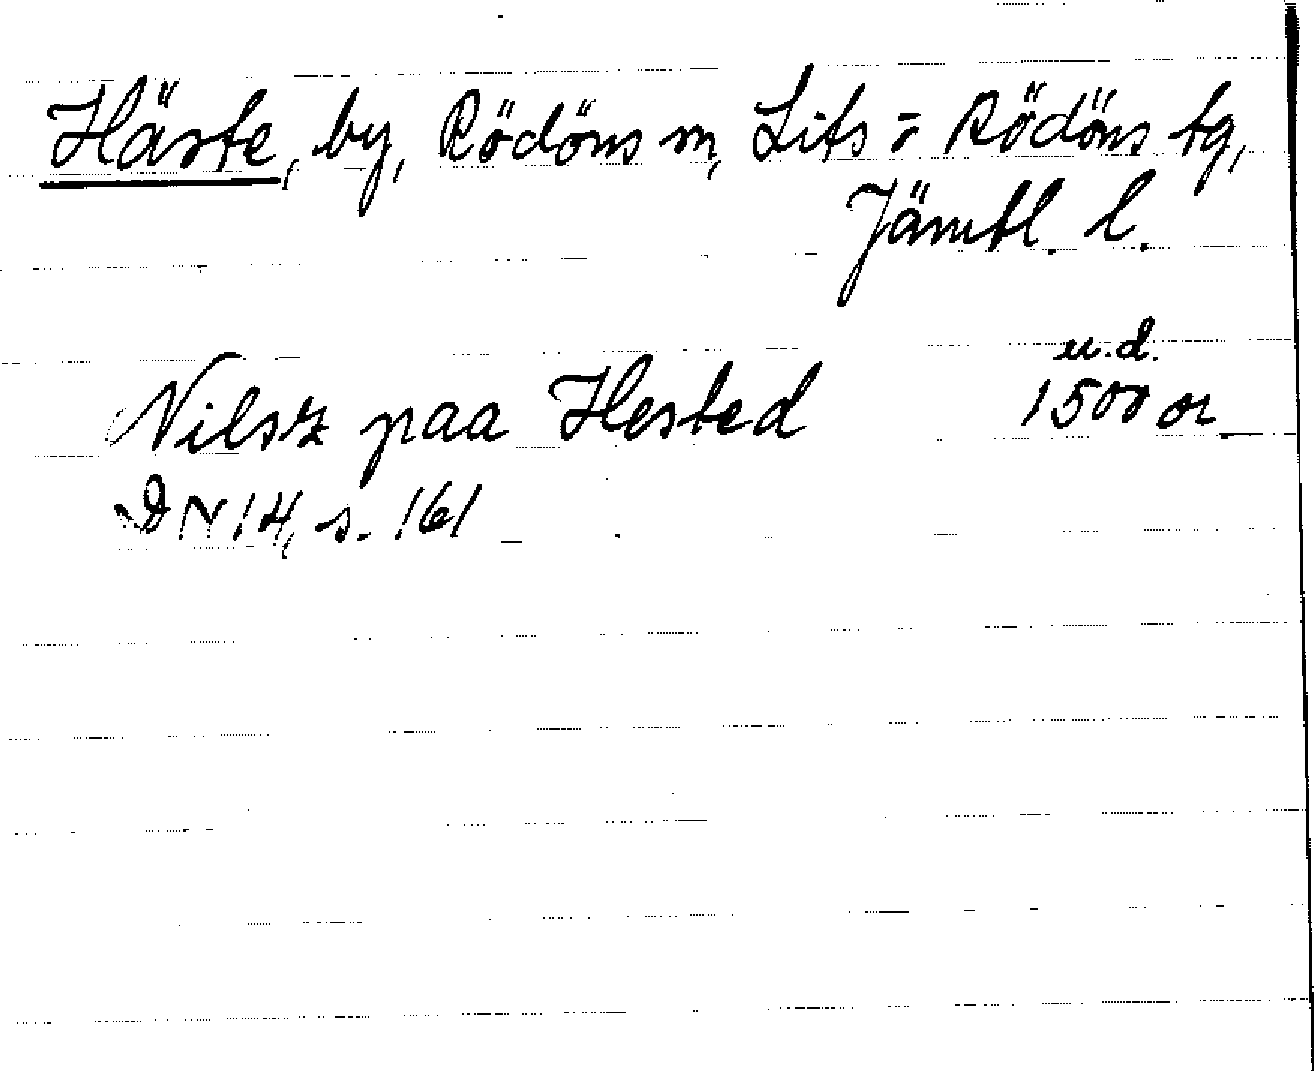 Häste, by, Rödöns sn, Lits = Rödöns tg,
Jämtl. l.
u.d.
Nilsz paa Hested 1500 or
DN 14, s. 161